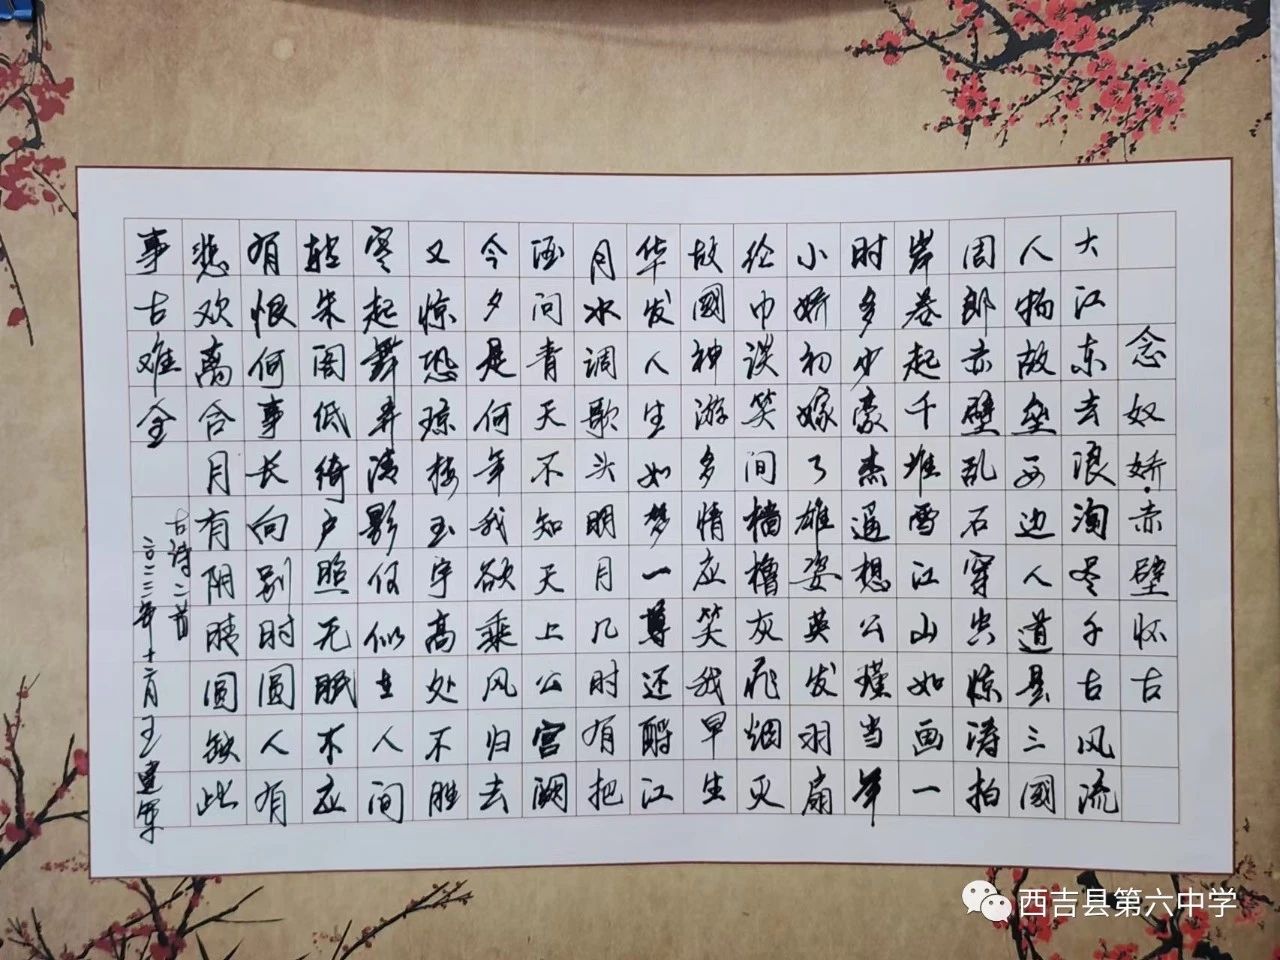 念奴娇·赤壁怀古
大江东去浪淘尽千古风流
人物故垒西边人道是三国
周郎赤壁乱石穿空惊涛拍
岸卷起千堆雪江山如画一
时多少豪杰遥想公瑾当年
小娇初嫁了雄姿英发羽扇
纶巾谈笑间樯橹灰飞烟灭
故國神游多情应笑我早生
华发人生如梦一尊还酹江
月水调歌头明月几时有把
酒问青天不知天上公宫阙
今夕是何年我欲乘风归去
又惊恐琼楼玉宇高处不胜
寒起舞弄清影何似在人间
转朱阁低绮户照无眠不应
有恨何事长向别时圆人有
悲欢离合月有阴晴圆缺此
事古难全
古诗二首
王建军
西吉县第六中学